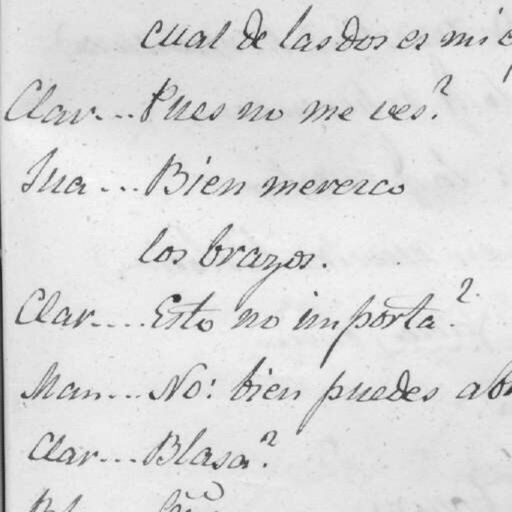 cual de las dos es mi
Clar... Pues no me ves?
Jua... Bien merezco
los brazos.
Clar.... Esto no importa?
Man... No: bien puedes
Clar... Blasa?